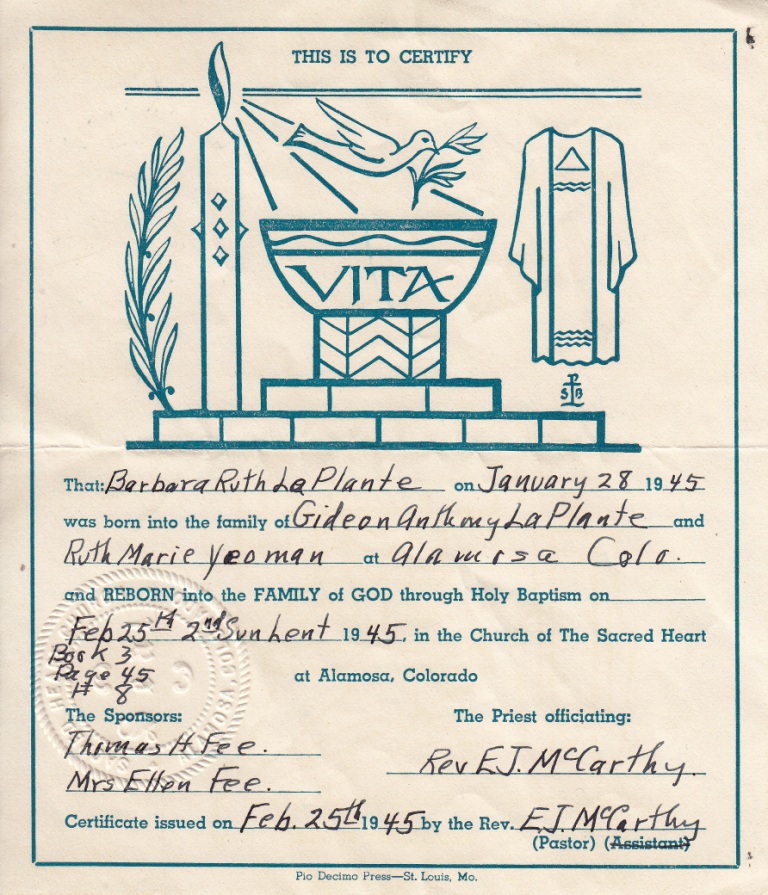 THIS IS TO CERTIFY
VITA
S P B
That: Barbara Ruth La Plante on January 28 1945
was born into the family of Gideon Anthony LaPlante and
Ruth Marie Yeoman at Alamosa Colo.
and REBORN into the FAMILY of GOD through Holy Baptism on
Feb 25th 2nd Sun Lent 1945, in the Church of The Sacred Heart
Book 3
Page 45
# 8
at Alamosa, Colorado
The Sponsors:
The Priest officiating:
Thomas H Fee.
Rev E.J. McCarthy.
Mrs Ellen Fee.
Certificate issued on Feb. 25th 1945 by the Rev. E.J. McCarthy
(Pastor) (Assistant)
Pio Decimo Press—St. Louis, Mo.